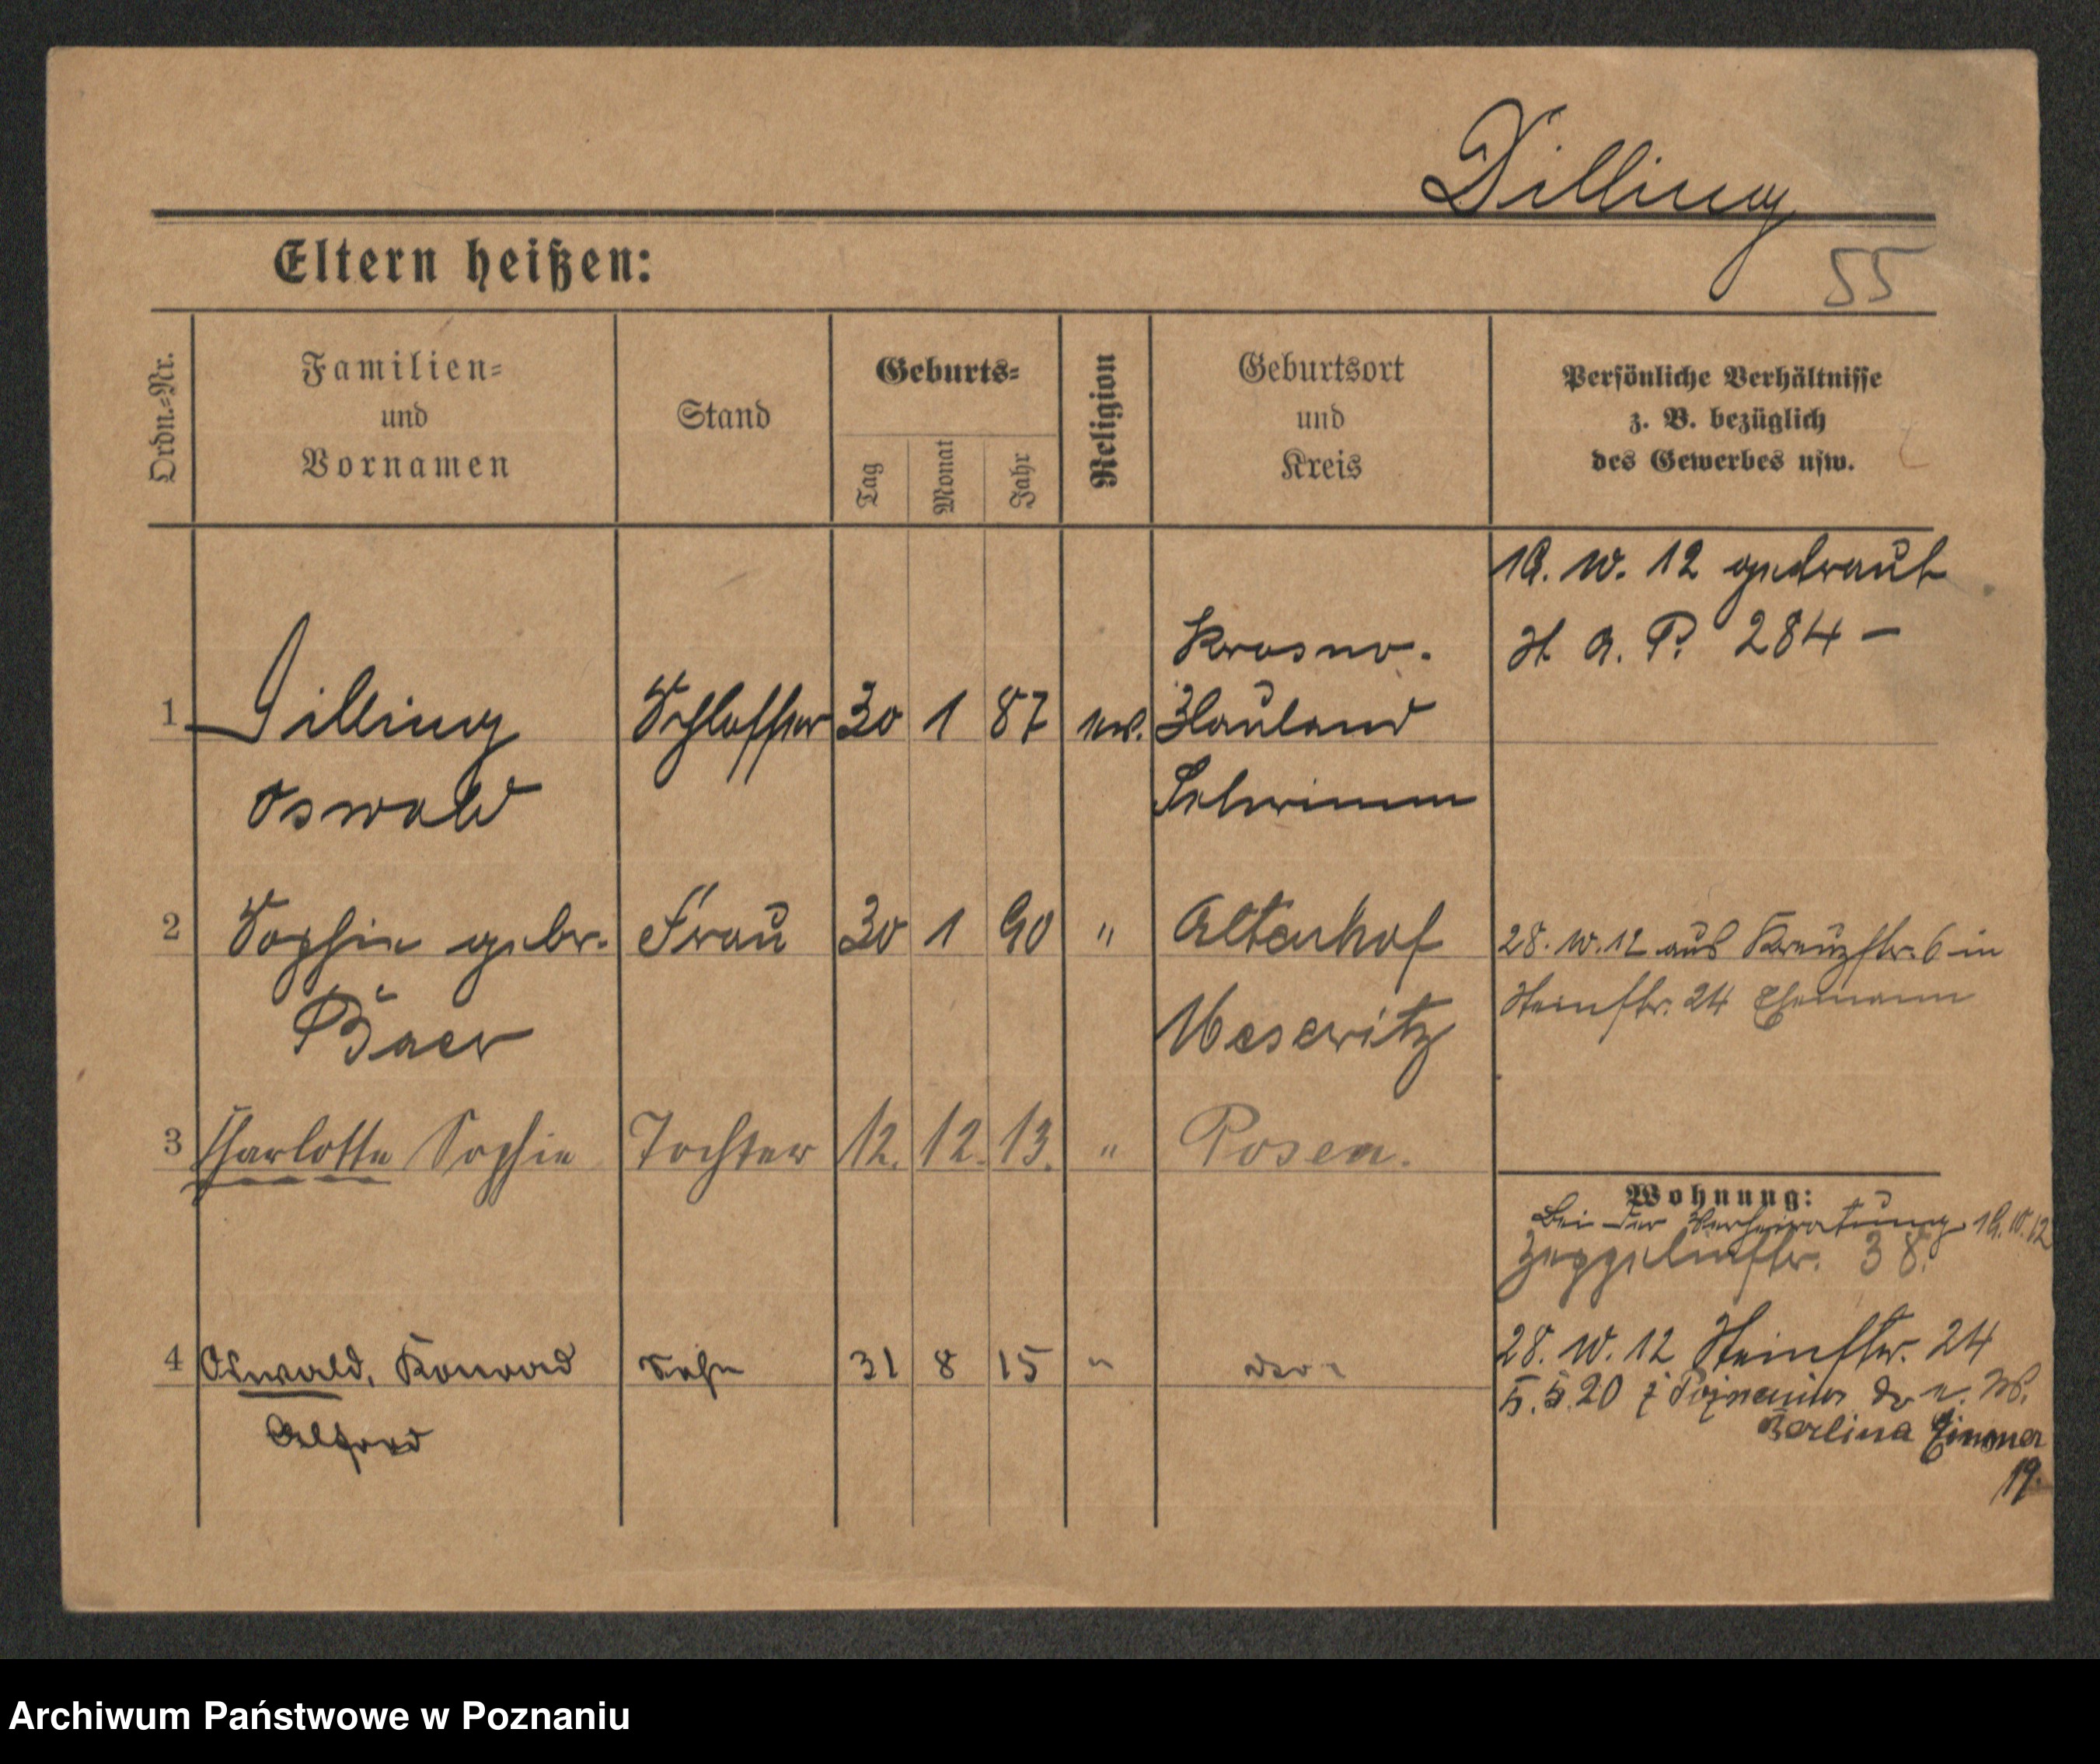 Dilling
55
Eltern heißen:
Ordn.-Nr.
Familien-
und
Vornamen
Stand
Geburts-
Tag
Monat
Jahr
Religion
Geburtsort
und
Kreis
Persönliche Verhältnisse
z. B. bezüglich
des Gewerbes usw.
19. 10. 12 getraut
H. A. P. 284 –
1 Dilling Schlosser 30 1 87 ev. Hauland
Krosno.
Oswald
2 Sophie gebr. Frau 30 1 90 " Altenhof
28. 10. 12 aus Kreuzstr. 6 in
Baer Meseritz
24 Ehemann
3 Charlotte Sophie Tochter 12. 12. 13. " Posen.
Wohnung:
Bei der Verheiratung 19. 10. 12
Zeppelinstr. 38.
4 Oswald, Konrad Sohn 31 8 15 "
Alfred
28. 10. 12 24
5. 5. 20 z Poznania do n. M.
Berlina
19.
Archiwum Państwowe w Poznaniu